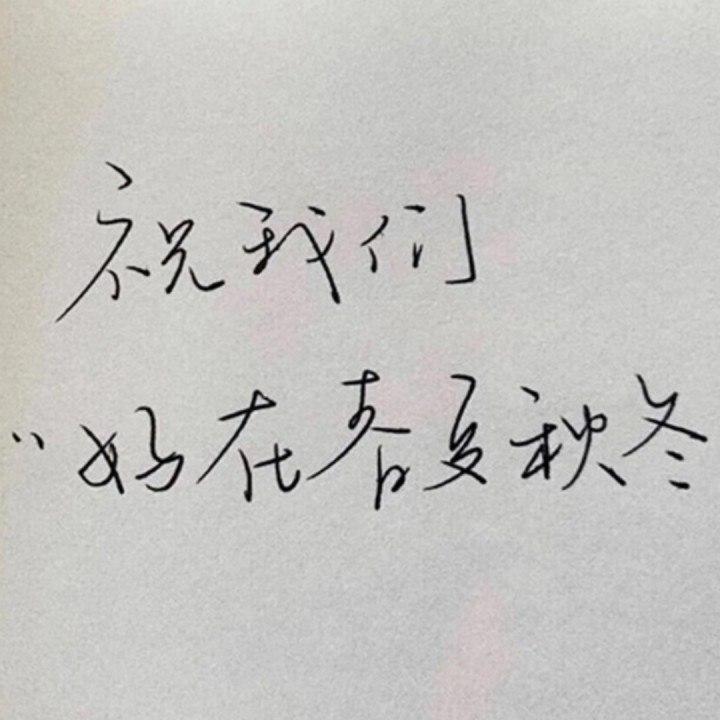 祝我们
“好在春夏秋冬